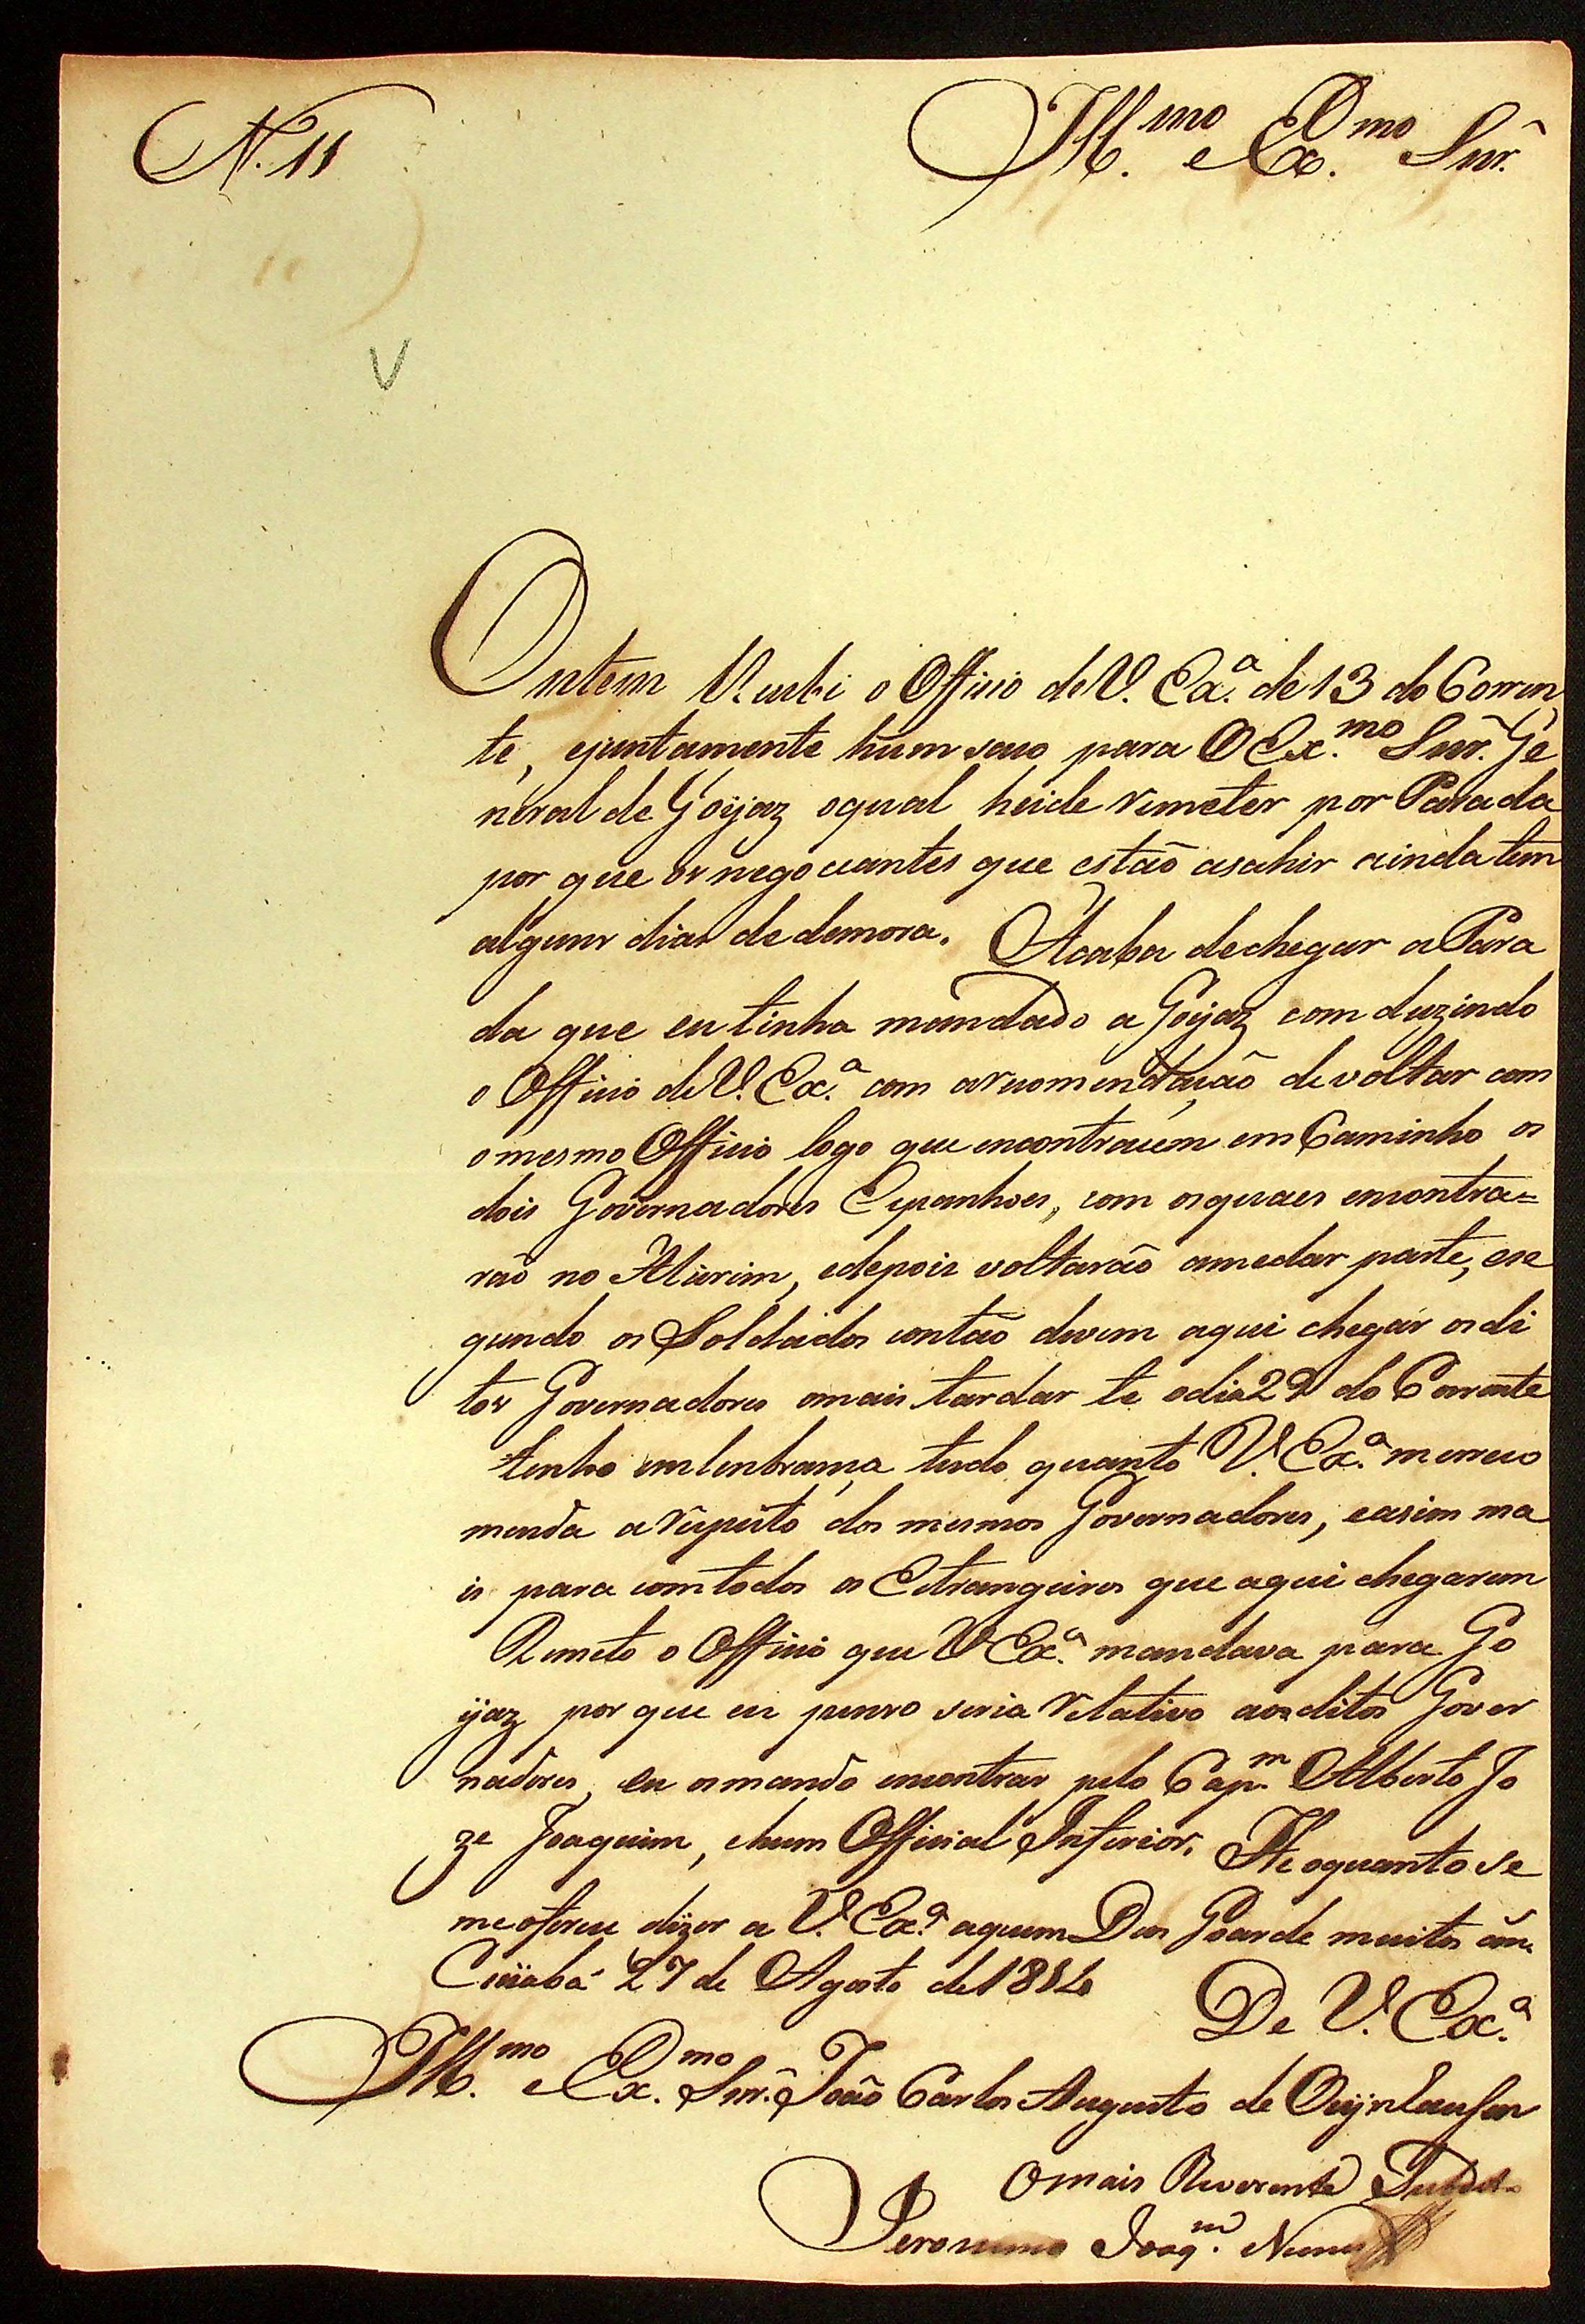 N. 11
Ill.mo e Ex.mo Snr.
V
Ontem Recebi o Officio de V. Exa. de 13 do Corren
te, ejuntamente hum seu para O Ex.mo Snr. Ge
neral de Goyaz oqual heide remeter por Parada
por que os negociantes que estão asahir ainda tem
alguns dias de demora. Acaba dechegar a Para
da que eu tinha mandado a Goyaz comduzindo
o Officio de V. Exa. com arecomendação de voltar com
omesmo Officio logo que encontracem em Caminho os
dois Governadores Espanhoes, com osquaes encontra=
rão no , edepois voltarão amedar parte, ese
gundo os Soldados contão devem aqui chegar os di
tos Governadores omais tardar te odia 29 do Corrente
tenho emlenbrança tudo quanto V. Exa. merreco
menda arespeito dos mesmos Governadores, easim ma
is para comtodos os Estrangeiros que aqui chegarem
Remeto o Officio que V Exa. mandava para Go
yaz por que eu penso seria relativo aos ditos Gover
nadores, eu osmando encontrar pelo Cap.m Alberto Jo
ze Joaquim, ehum Official Inferior. He oquanto se
me oferece dizer a V. Exa. aquem Deos Goarde muitos an.
Cuiabá 27 de Agosto de 181
De V. Exa.
Ill.mo e Ex.mo Snr. João Carlos Augusto de Oeynhausen
O mais Reverente Subd.
Jeronimo Joaq.m Nunes